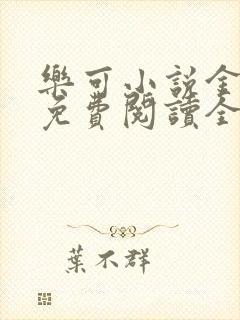 樂可小說全
免費閱讀全
葉不群